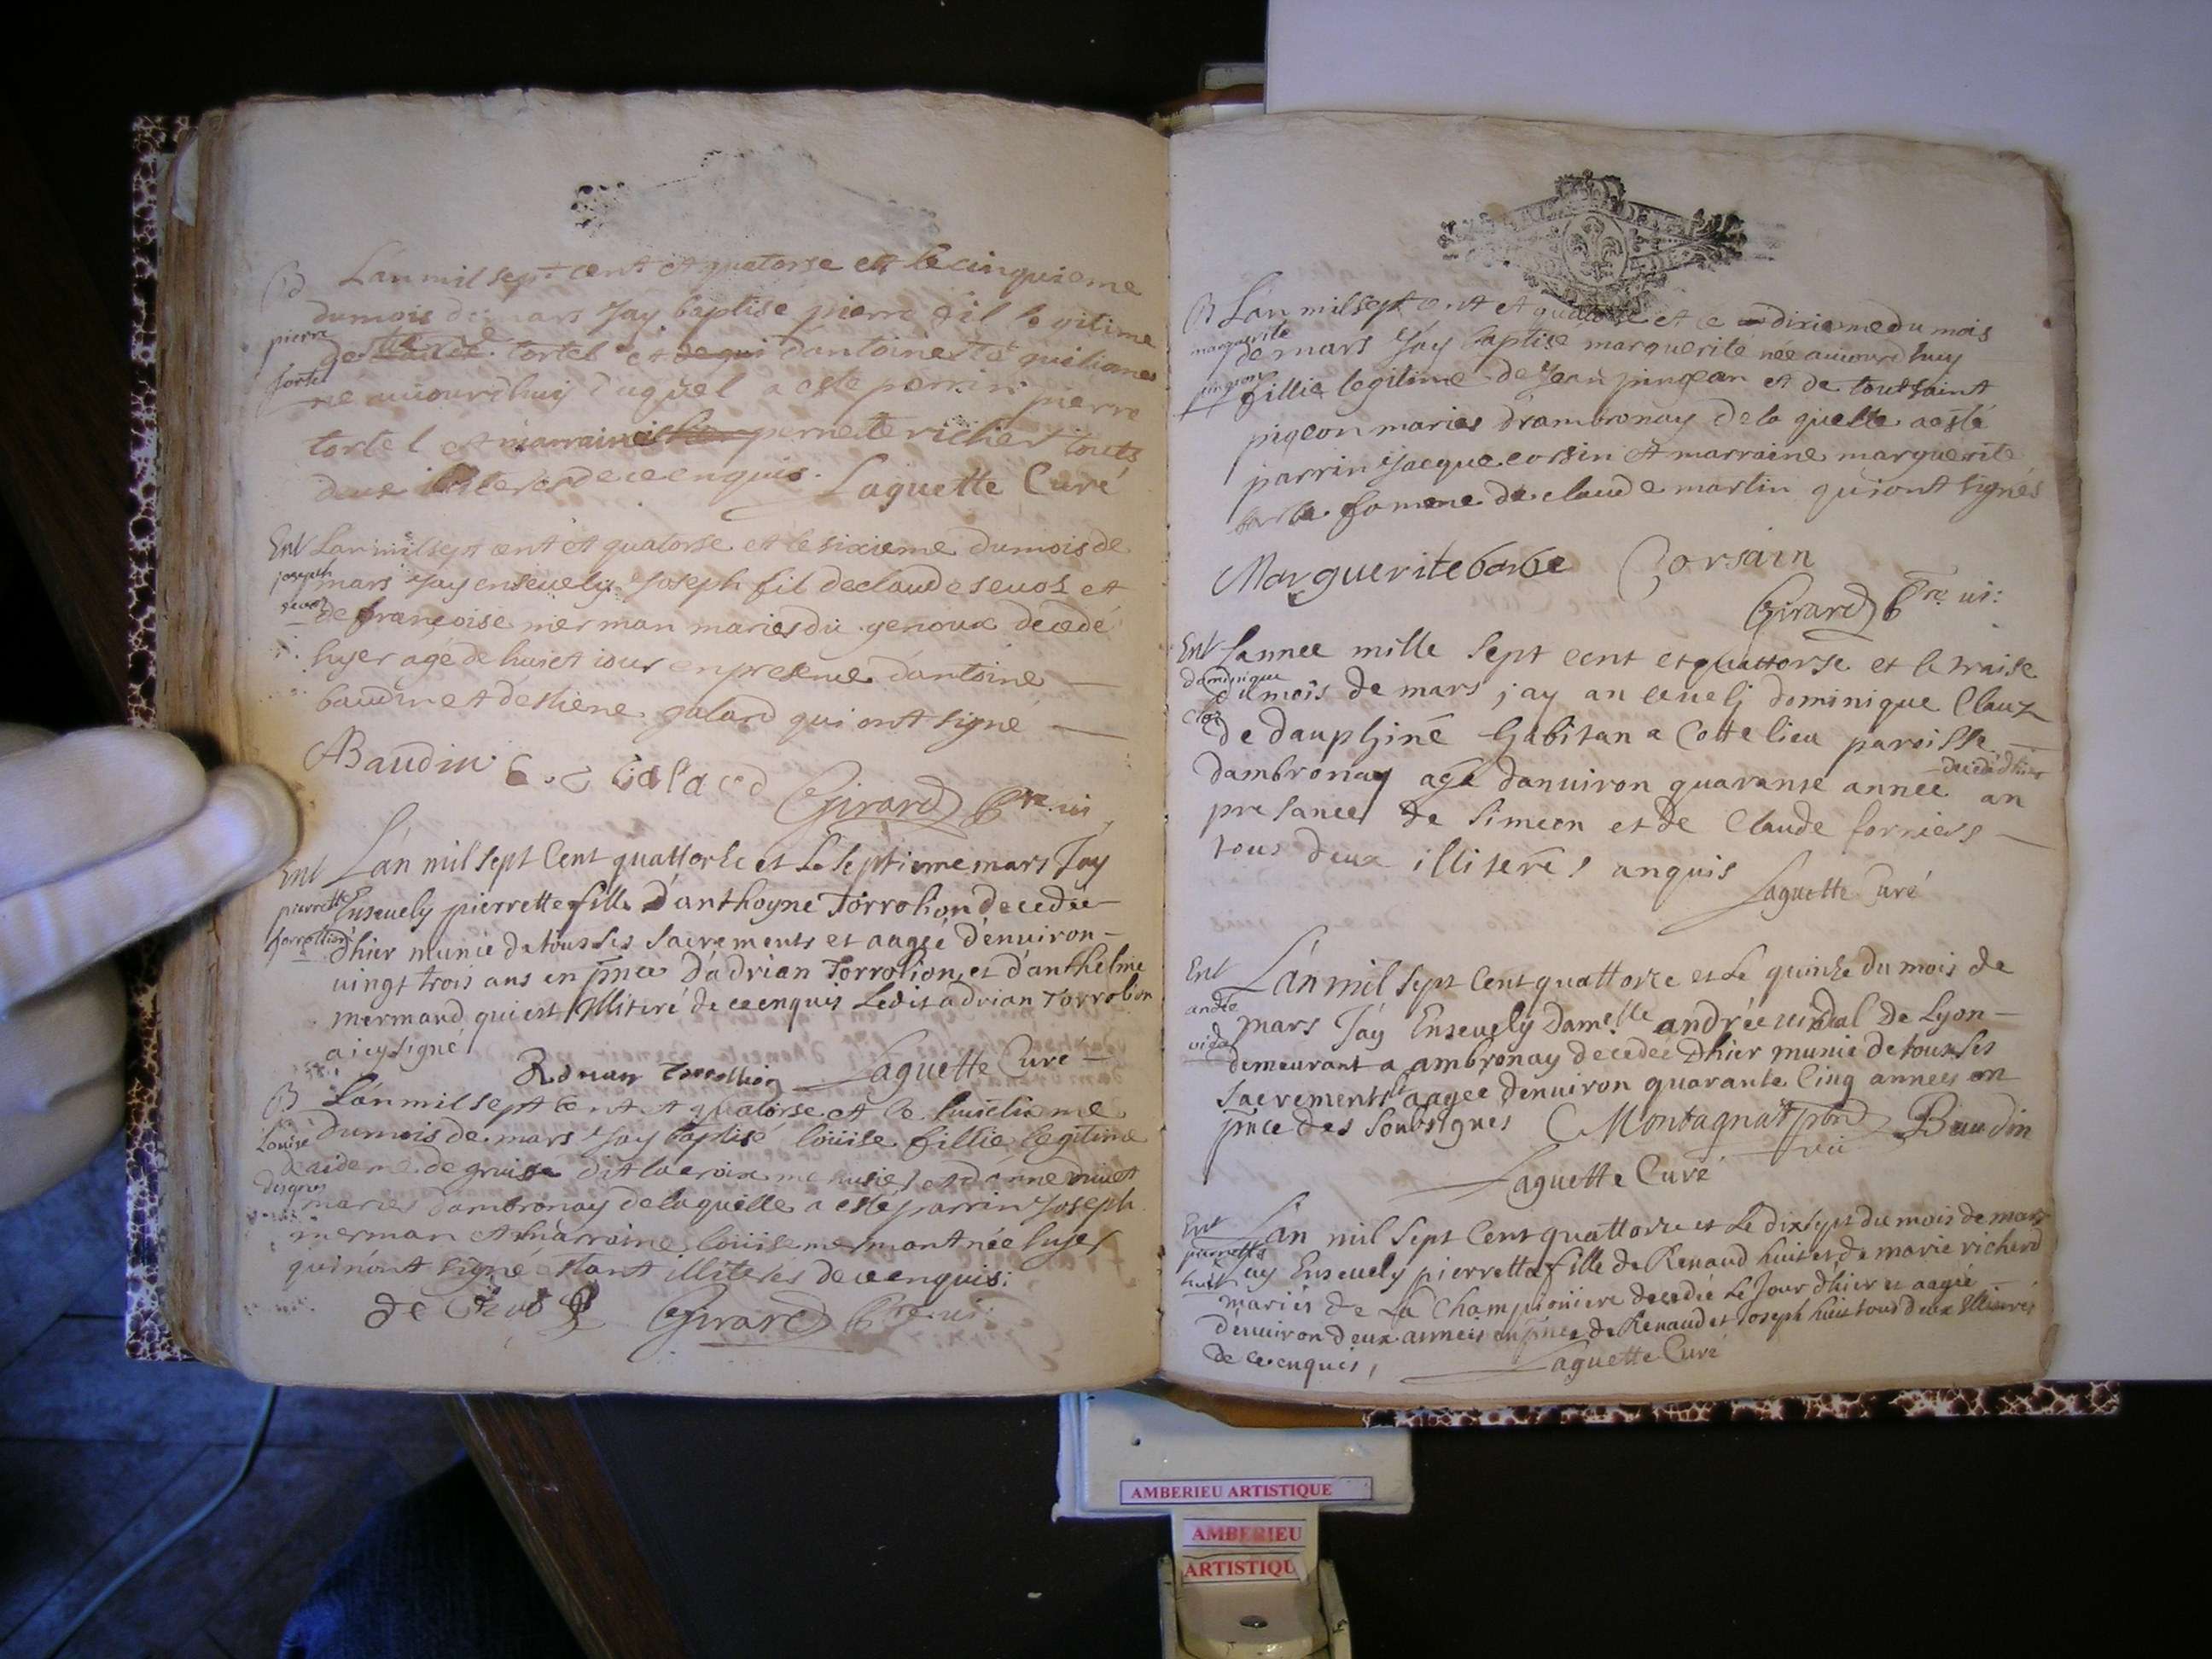 B L'an mil sept cent et quatorse et le cinquieme
du mois de mars Jay baptisé pierre fil legitime
pierre
de tortel et d'antoinette guilianes
tortel
né auiourdhuij duquel a esté parrin pierre
tortel et marraine pernette richer touts
deux illiterés de ce enquis. Laguette Curé
Ent L'an mil sept cent et quatorse et le sixieme du mois de
joseph mars Jay enseuely Joseph fil de claude seuoz et
seuoz
de françoise merman mariés du genoux decedé
hyer agé de huict iour en presence d'antoine
baudin et d'estiene galard qui ont signé
ABaudin E. Galard Girard ptre. ui
Ent L'an mil sept Cent quattorze et Le septieme mars Jay
pierrette Enseuely pierrette fille D'anthoyne Torrolion decedée
torrollion dhier munie de tous ses sacrements et aagée d'enuiron
uingt trois ans en pnce D'adrian Torrolion et d'anthelme
mermand qui est Illiteré de ce enquis Ledit adrian Torrolion
a icy signé
Adrian Torrollion Laguette Curé
B L'an mil sept cent et quatorse et le huictieme
Louise du mois de mars Jay baptisé loüise fillie legitime
de aideme de gruise dit lacroix menusier et d'anne niuet
maries d'ambronay de laquelle a esté parrin Joseph
merman et marraine loüise mermant née hyer
qui n'ont signé estant illiterés de ce enquis:
Girard ptre. ui:
B L'an mil sept cent et quatorse et le dixieme du mois
marguerite
de mars Jay baptisé marguerite née auiourdhuy
pingeon
fillie legitime de Jean pingeon et de toutsaint
pigeon maries d'ambronay de la quelle a esté
parrin Jacque corsin et marraine marguerite
barbe femme de claude martin qui ont signés
Marguerite barbe Corsain
Girard ptre. ui:
Ent Lannee mille sept cent et quattorse et le traise
dominique
du mois de mars j ay an ceuelj dominique Clauz
cloz
de dauphiné habitan a Cottelieu paroisse
decedé dhier
dambronay agé danuiron quaranse année an
presance de Simeon et de Claude forniers
tous deux illiterés anquis Laguette Curé
Ent L'an mil sept Cent quattorze et Le quinze du mois de
andée mars Jay Enseuely Damelle andrée uidal de Lyon
vidal
demeurant a ambronay decedée dhier munie de tous ses
sacrements aagee denuiron quarante Cinq années en
pnce des soubsignes Montagnat pbre Baudin
vic
Laguette Curé
Ent L'an mil sept Cent quattorze et Le dixsept du mois de mars
pierrette Jay Enseuely pierrette fille de Renaud huit et de marie richerd
huit
mariés de La Championiere decedée Le Jour dhier et aagée
denuiron deux années en pnce de Renaud et Joseph huit tous deux Illiterés
de ce enquis, Laguette Curé
AMBERIEU ARTISTIQUE
AMBERIEU
ARTISTIQU